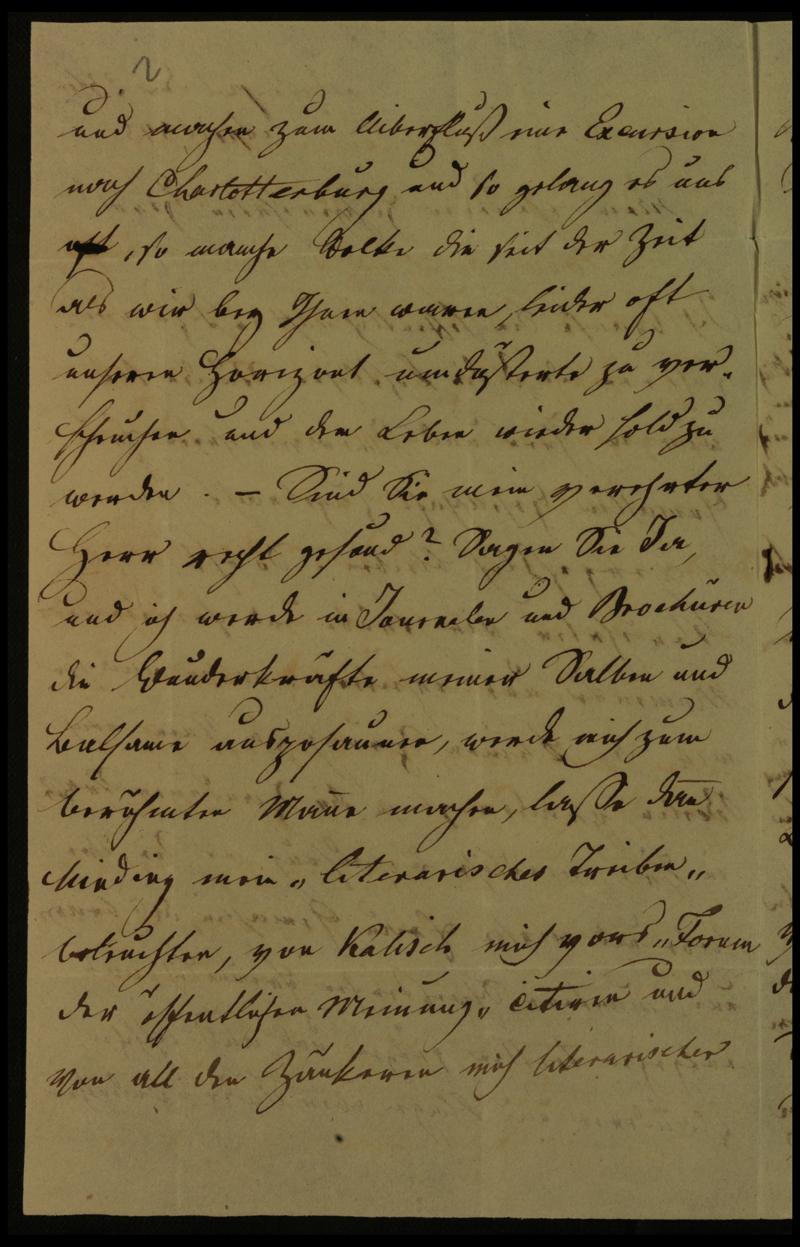 2
und machen zum Überfluß eine Excursion
nach Charlottenburg und so gelang es uns
oft, so manche Wolke die seit der Zeit
als wir bey Ihnen waren, leider oft
unseren Horizont umdüsterte zu ver-
scheuchen und dem Leben wieder hold zu
werden. – Sind Sie mein verehrter
Herr recht gesund? Sagen Sie Ja,
und ich werde in Journalen und Brochüren
die Wunderkräfte meiner Salben und
Balsame ausposaunen, werde mich zum
berühmten Mañe machen, lasse dañ
Minding mein „literarisches Treiben„
beleuchten, von Kalisch mich vors „Forum
der öffentlichen Meinung„ citiren und
von all den Zänkeren mich literarischer